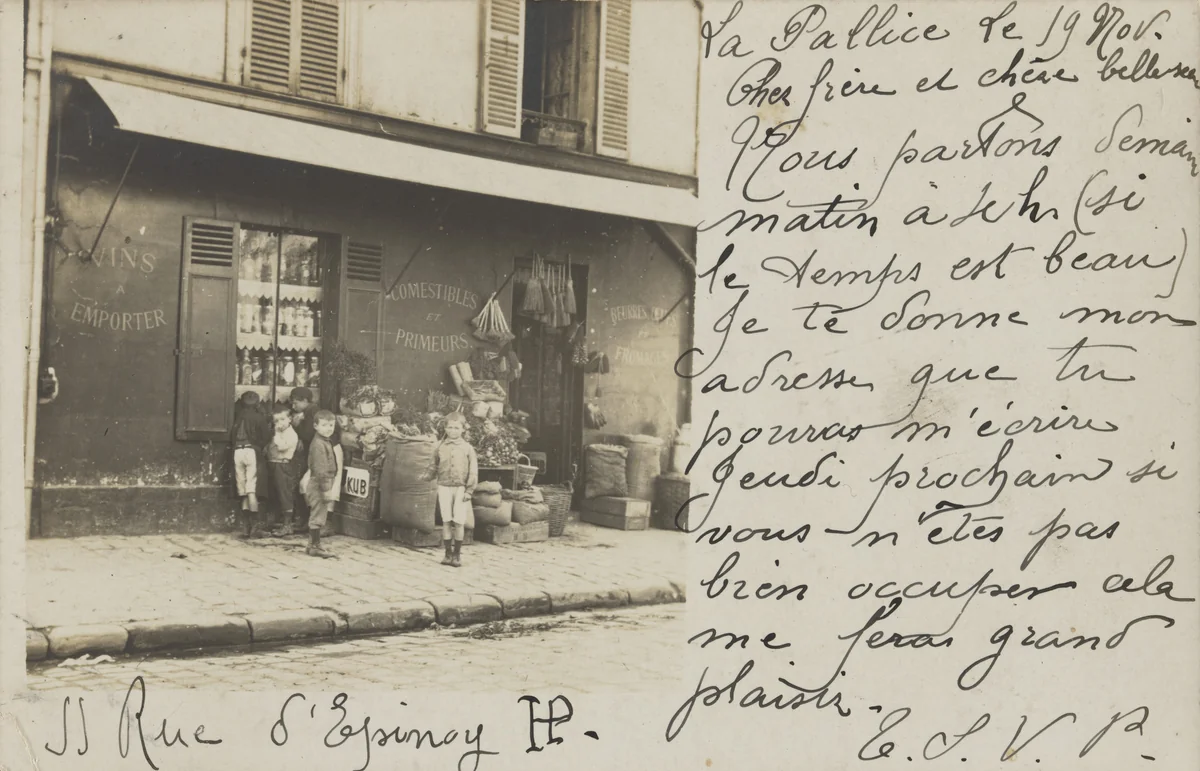 VINS
A
EMPORTER
COMESTIBLES
ET
PRIMEURS
BEURRES
ET
FROMAGES
KUB
La Pallice le 19 Nov.
Cher frère et chère belle sœur
Nous partons demain
matin à h (si
le temps est beau)
Je te donne mon
adresse que tu
pouras m'écrire
Jeudi prochain si
vous n'êtes pas
bien occuper cela
me feras grand
plaisir.
T. S. V. P.
Rue d'Epinay HP.